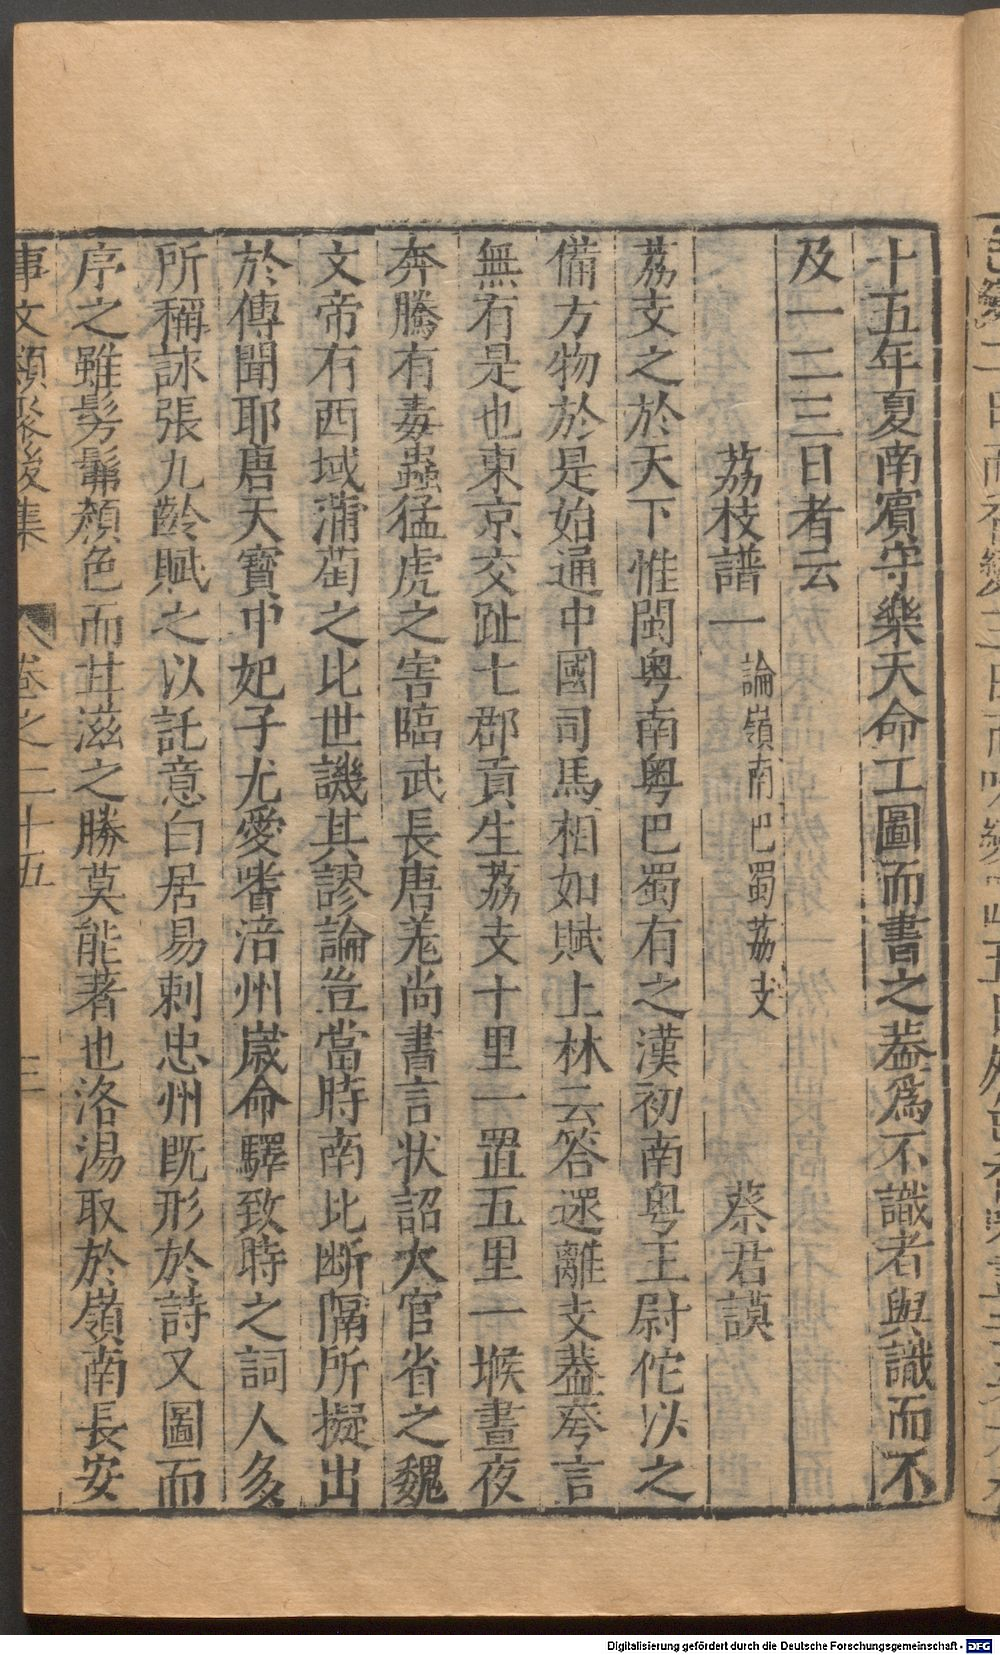 十五年夏南賓守樂天命工圖而書之葢爲不識者與識而不
及一二三日者云
荔枝譜一 論嶺南巴蜀荔支 蔡君謨
荔支之於天下惟閩粤南粤巴蜀有之漢初南粤王尉佗以之
備方物於是始通中國司馬相如賦上林云答遝離支葢夸言
無有是也東京交趾七郡貢生荔支十里一置五里一堠晝夜
奔騰有毒蟲猛虎之害臨武長唐羌尚書言状詔大官省之魏
文帝有西域蒲萄之比世譏其謬論豈當時南比断隔所擬出
於傳聞耶唐天寳中妃子尤愛嗜涪州嵗命驛致時之詞人多
所稱詠張九齡賦之以託意白居易刺忠州既形於詩又圖而
序之雖髣髴顏色而甘滋之勝莫能著也洛湯取於嶺南長安
事文類聚後集 卷之二十五 三
Digitalisierung gefördert durch die Deutsche Forschungsgemeinschaft - DFG